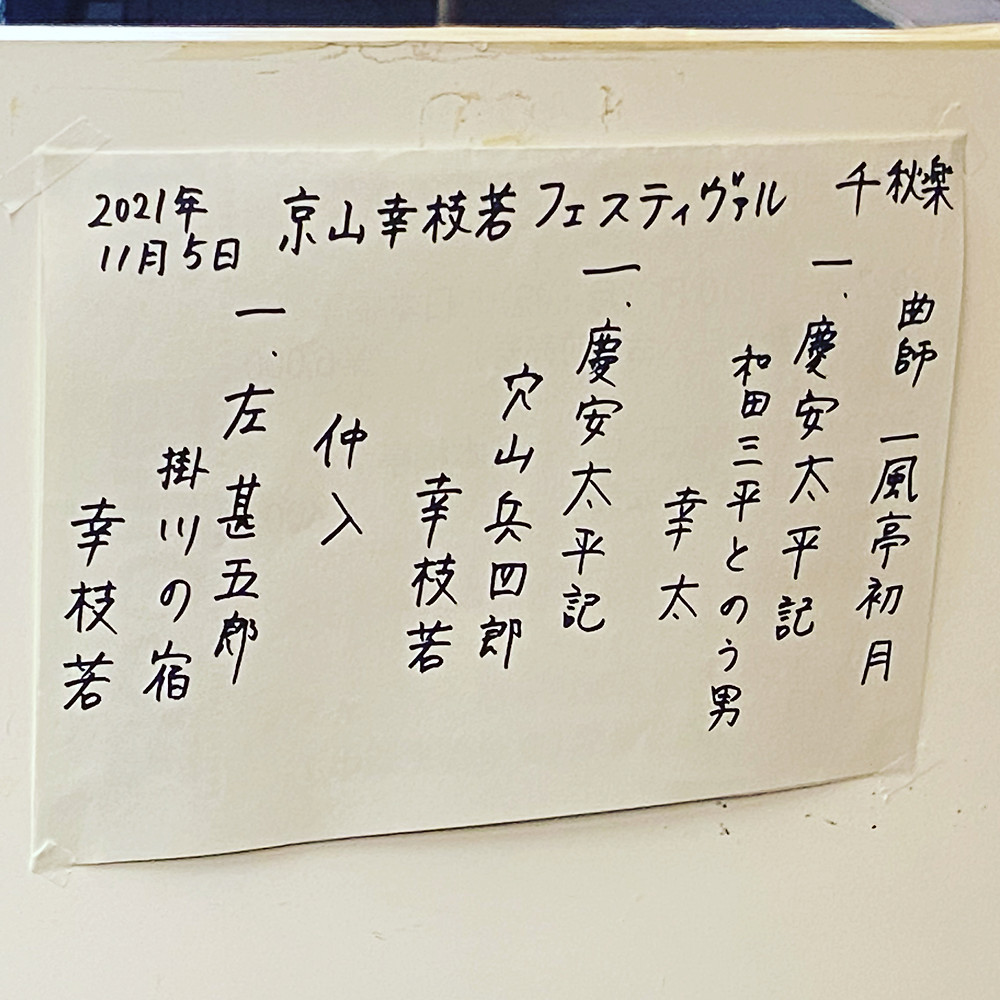 2021年
11月5日
京山幸枝若フェスティヴァル
千秋楽
曲師 一風亭初月
一、慶安太平記
和田三平とのう男
幸太
一、慶安太平記
穴山兵四郎
幸枝若
仲入
一、左甚五郎
掛川の宿
幸枝若